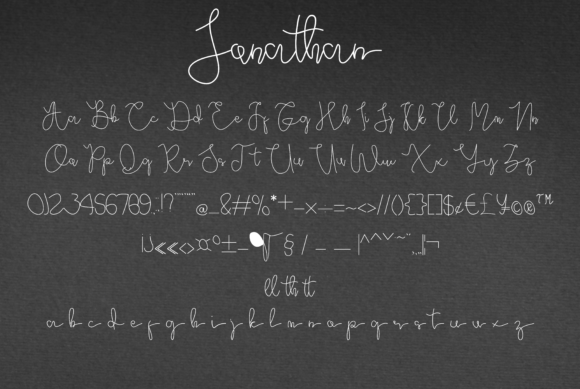 Jonathan
Aa Bb Cc Dd Ee Ff Gg Hh Ii Jj Kk Ll Mm Nn
Oo Pp Qq Rr Ss Tt Uu Vv Ww Xx Yy Zz
0123456789.:!?""'' @_&#%*+_×÷=~<>//(){}[]$¢€£¥©®™
«<>¤°±_ § / _ _ |^^ˇ~¨
ll th tt
a b c d e f g h i j k l m n o p q r s t u v w x z